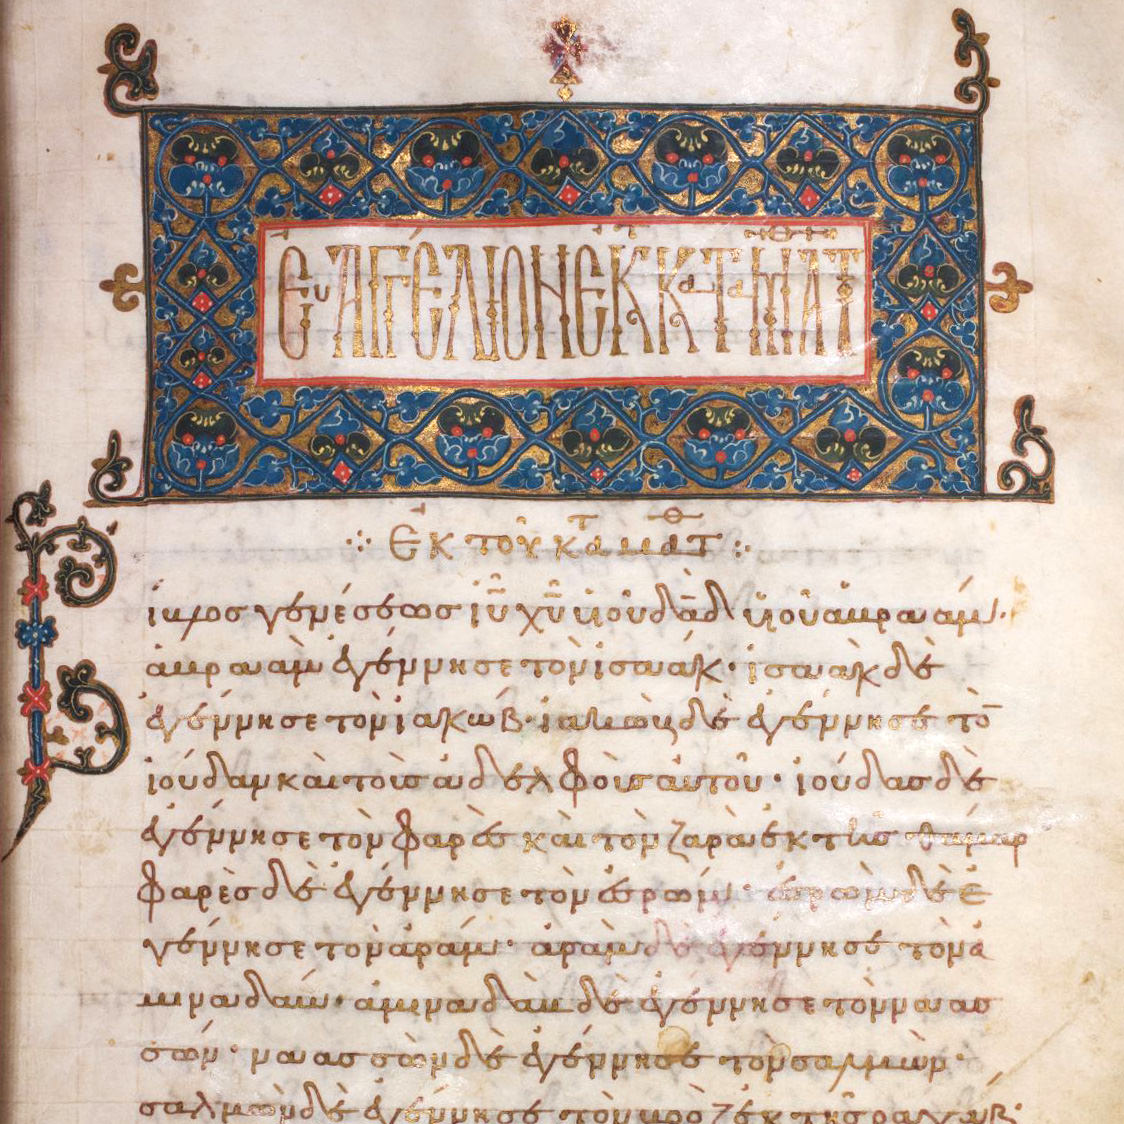 ΕυΑΓΓΕΛΙΟΝ ΕΚ Κ Τ ΜΑΤ
Ἐκ τοῦ κατὰ ματθ
ίβλος γενέσεως ἰῦ χῦ υἱοῦ δαδ υἱοῦ ἀβραάμ·
ἀβραὰμ ἐγέννησε τὸν ἰσαάκ· ἰσαὰκ δὲ
ἐγέννησε τὸν ἰακώβ· ἰακὼβ δὲ ἐγέννησε τὸ
ἰούδαν καὶ τοὺς ἀδελφοὺς αὐτοῦ· ἰούδας δὲ
ἐγέννησε τὸν φαρὲς καὶ τὸν ζαρὰ ἐκ τῆς θάμαρ
φαρὲς δὲ ἐγέννησε τὸν ἐσρώμ· ἐσρὼμ δὲ ἐ
γέννησε τὸν ἀράμ· ἀρὰμ δὲ ἐγέννησε τὸν ἀ
μιναδάμ· ἀμιναδὰμ δὲ ἐγέννησε τὸν ναασ
σών· ναασσὼν δὲ ἐγέννησε τὸν σαλμών·
σαλμὼν δὲ ἐγέννησε τὸν βοὸζ ἐκ τῆς ραχάβ·